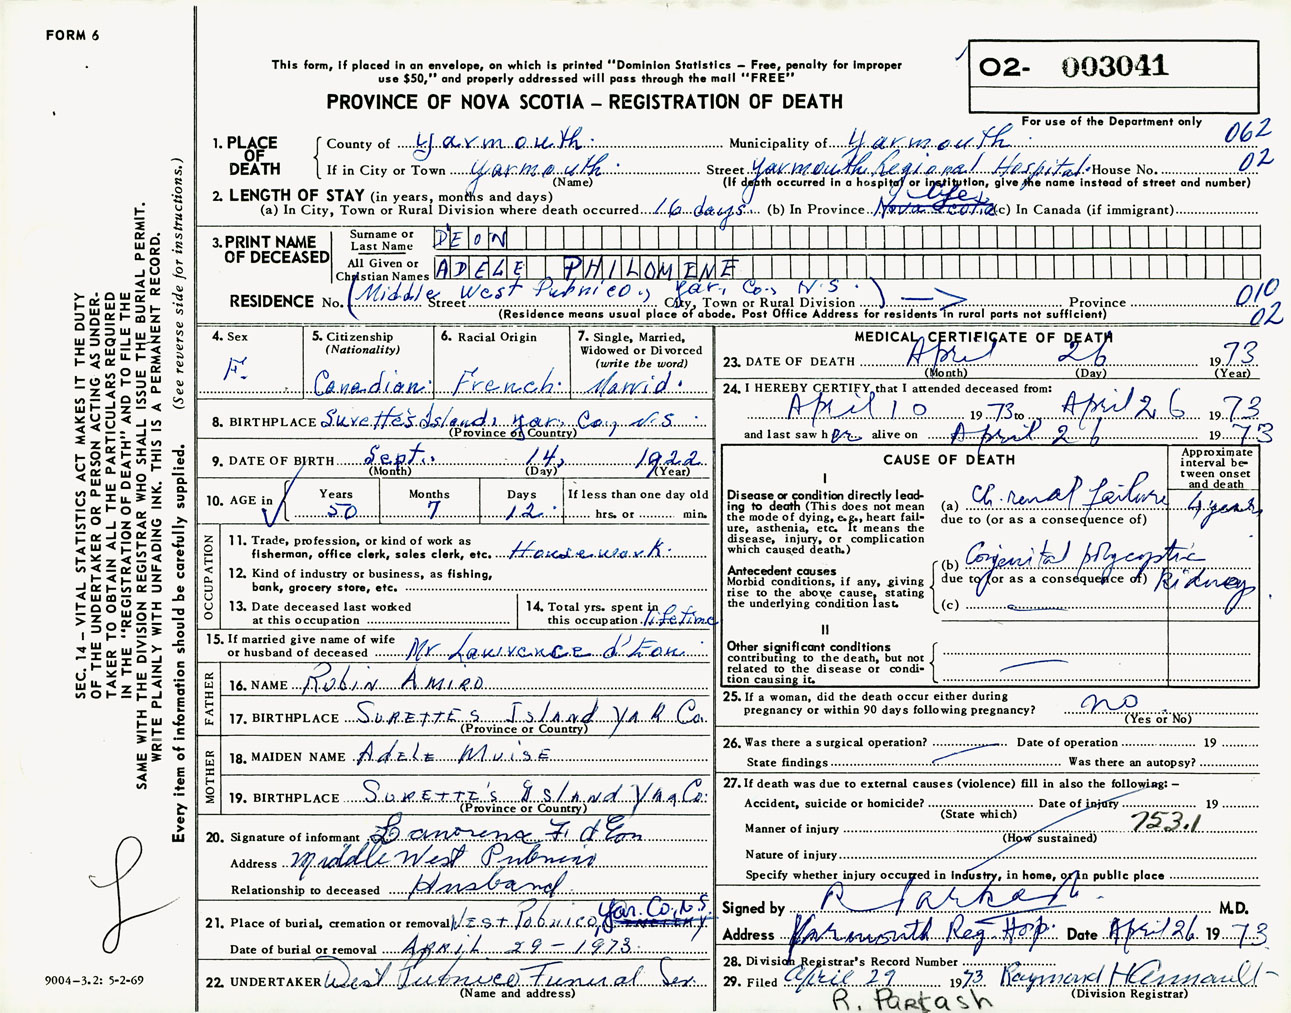 FORM 6
This form, if placed in an envelope, on which is printed "Dominion Statistics – Free, penalty for improper
use $50," and properly addressed will pass through the mail "FREE"
PROVINCE OF NOVA SCOTIA – REGISTRATION OF DEATH
02- 003041
For use of the Department only
062
02
1. PLACE OF DEATH
County of Yarmouth. Municipality of Yarmouth
If in City or Town Yarmouth. Street Yarmouth Regional Hospital. House No.
(Name) (If death occurred in a hospital or institution, give the name instead of street and number)
2. LENGTH OF STAY (in years, months and days)
(a) In City, Town or Rural Division where death occurred 16 days. (b) In Province Nova Scotia life (c) In Canada (if immigrant)
3. PRINT NAME OF DECEASED
Surname or Last Name D'EON
All Given or Christian Names ADELE PHILOMENE
RESIDENCE No. (Middle West Pubnico, Yar. Co., N.S.) →
Street City, Town or Rural Division Province
010
02
(Residence means usual place of abode. Post Office Address for residents in rural parts not sufficient)
4. Sex
F.
5. Citizenship
(Nationality)
Canadian.
6. Racial Origin
French.
7. Single, Married,
Widowed or Divorced
(write the word)
Married.
8. BIRTHPLACE Surette's Island, Yar. Co., N.S.
(Province or Country)
9. DATE OF BIRTH Sept. 14, 1922
(Month) (Day) (Year)
10. AGE in
Years Months Days If less than one day old
50 7 12. hrs. or min.
OCCUPATION
11. Trade, profession, or kind of work as
fisherman, office clerk, sales clerk, etc. Housework.
12. Kind of industry or business, as fishing,
bank, grocery store, etc.
13. Date deceased last worked
at this occupation
14. Total yrs. spent in
this occupation. lifetime
15. If married give name of wife
or husband of deceased Mr Lawrence d'Eon
FATHER
16. NAME Robin Amiro
17. BIRTHPLACE Surette's Island Yar Co.
(Province or Country)
MOTHER
18. MAIDEN NAME Adele Muise
19. BIRTHPLACE Surette's Island Yar Co.
(Province or Country)
20. Signature of informant Lawrence F. d'Eon
Address Middle West Pubnico
Relationship to deceased Husband
21. Place of burial, cremation or removal West Pubnico, Yar. Co., N.S.
Date of burial or removal April 29 – 1973
22. UNDERTAKER West Pubnico Funeral Ser.
(Name and address)
MEDICAL CERTIFICATE OF DEATH
23. DATE OF DEATH April 26 1973
(Month) (Day) (Year)
24. I HEREBY CERTIFY that I attended deceased from:
April 10 1973 to April 26 1973
and last saw her alive on April 26 1973
CAUSE OF DEATH
Approximate
interval be-
tween onset
and death
I
Disease or condition directly lead-
ing to death (This does not mean
the mode of dying, e.g., heart fail-
ure, asthenia, etc. It means the
disease, injury, or complication
which caused death.)
(a) Ch. renal failure 4 years
due to (or as a consequence of)
Antecedent causes
Morbid conditions, if any, giving
rise to the above cause, stating
the underlying condition last.
(b) Congenital polycystic
due to (or as a consequence of) Kidneys
(c)
II
Other significant conditions
contributing to the death, but not
related to the disease or condi-
tion causing it.
25. If a woman, did the death occur either during
pregnancy or within 90 days following pregnancy? no
(Yes or No)
26. Was there a surgical operation? Date of operation 19
State findings Was there an autopsy?
27. If death was due to external causes (violence) fill in also the following: –
Accident, suicide or homicide? Date of injury 19
(State which)
Manner of injury 753.1
(How sustained)
Nature of injury
Specify whether injury occurred in industry, in home, or in public place
Signed by R Parkash M.D.
Address Yarmouth Reg. Hosp. Date April 26 1973
28. Division Registrar's Record Number
29. Filed April 29 1973 Raymond H Amirault
(Division Registrar)
R. Parkash
SEC. 14 – VITAL STATISTICS ACT MAKES IT THE DUTY
OF THE UNDERTAKER OR PERSON ACTING AS UNDER-
TAKER TO OBTAIN ALL THE PARTICULARS REQUIRED
IN THE "REGISTRATION OF DEATH" AND TO FILE THE
SAME WITH THE DIVISION REGISTRAR WHO SHALL ISSUE THE BURIAL PERMIT.
WRITE PLAINLY WITH UNFADING INK. THIS IS A PERMANENT RECORD.
Every item of information should be carefully supplied. (See reverse side for instructions.)
9004–3.2: 5-2-69